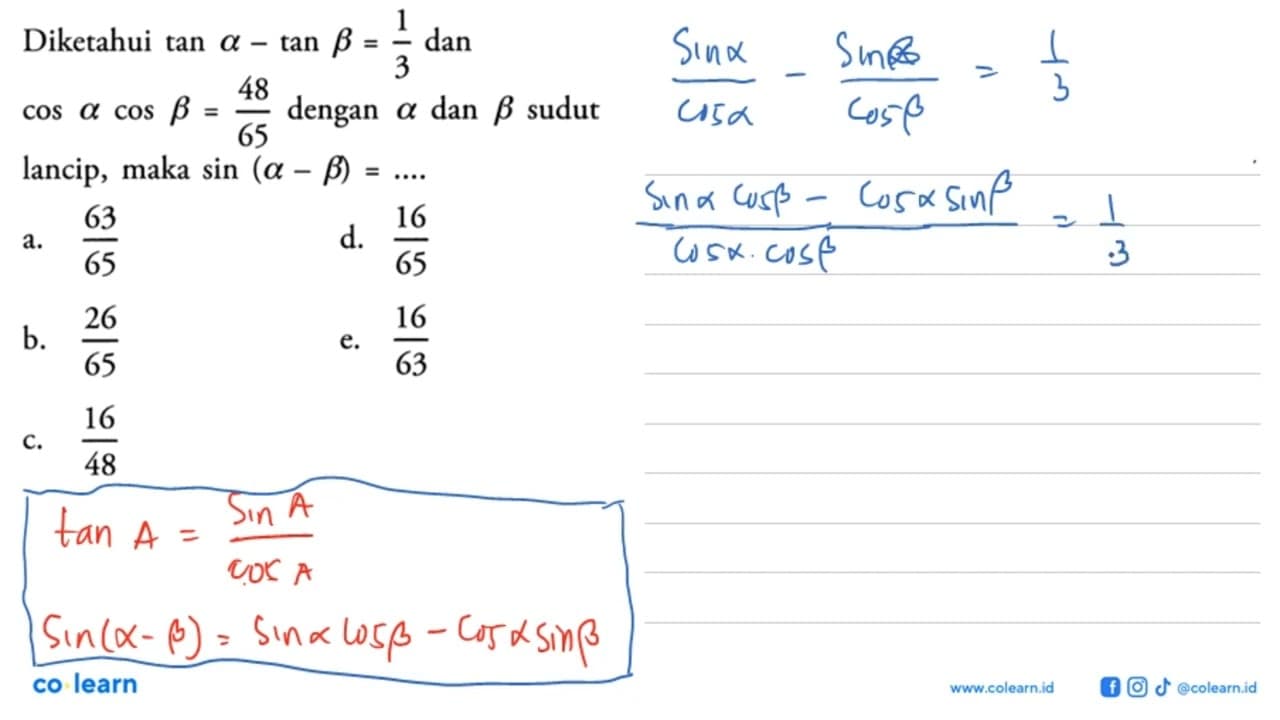 Diketahui tan α – tan β = 1/3 dan
cos α cos β = 48/65 dengan α dan β sudut
lancip, maka sin (α – β) = ....
a. 63/65
d. 16/65
b. 26/65
e. 16/63
c. 16/48
tan A = Sin A / cos A
Sin(α - β) = Sin α cos β - cos α sin β
Sin α / cos α - Sin β / cos β = 1/3
Sin α cos β - cos α sin β / cos α . cos β = 1/3
co learn
www.colearn.id @colearn.id